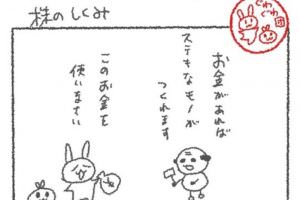 株のしくみ
お金があれば
ステキなモノが
つくれます
このお金を
使いなさい